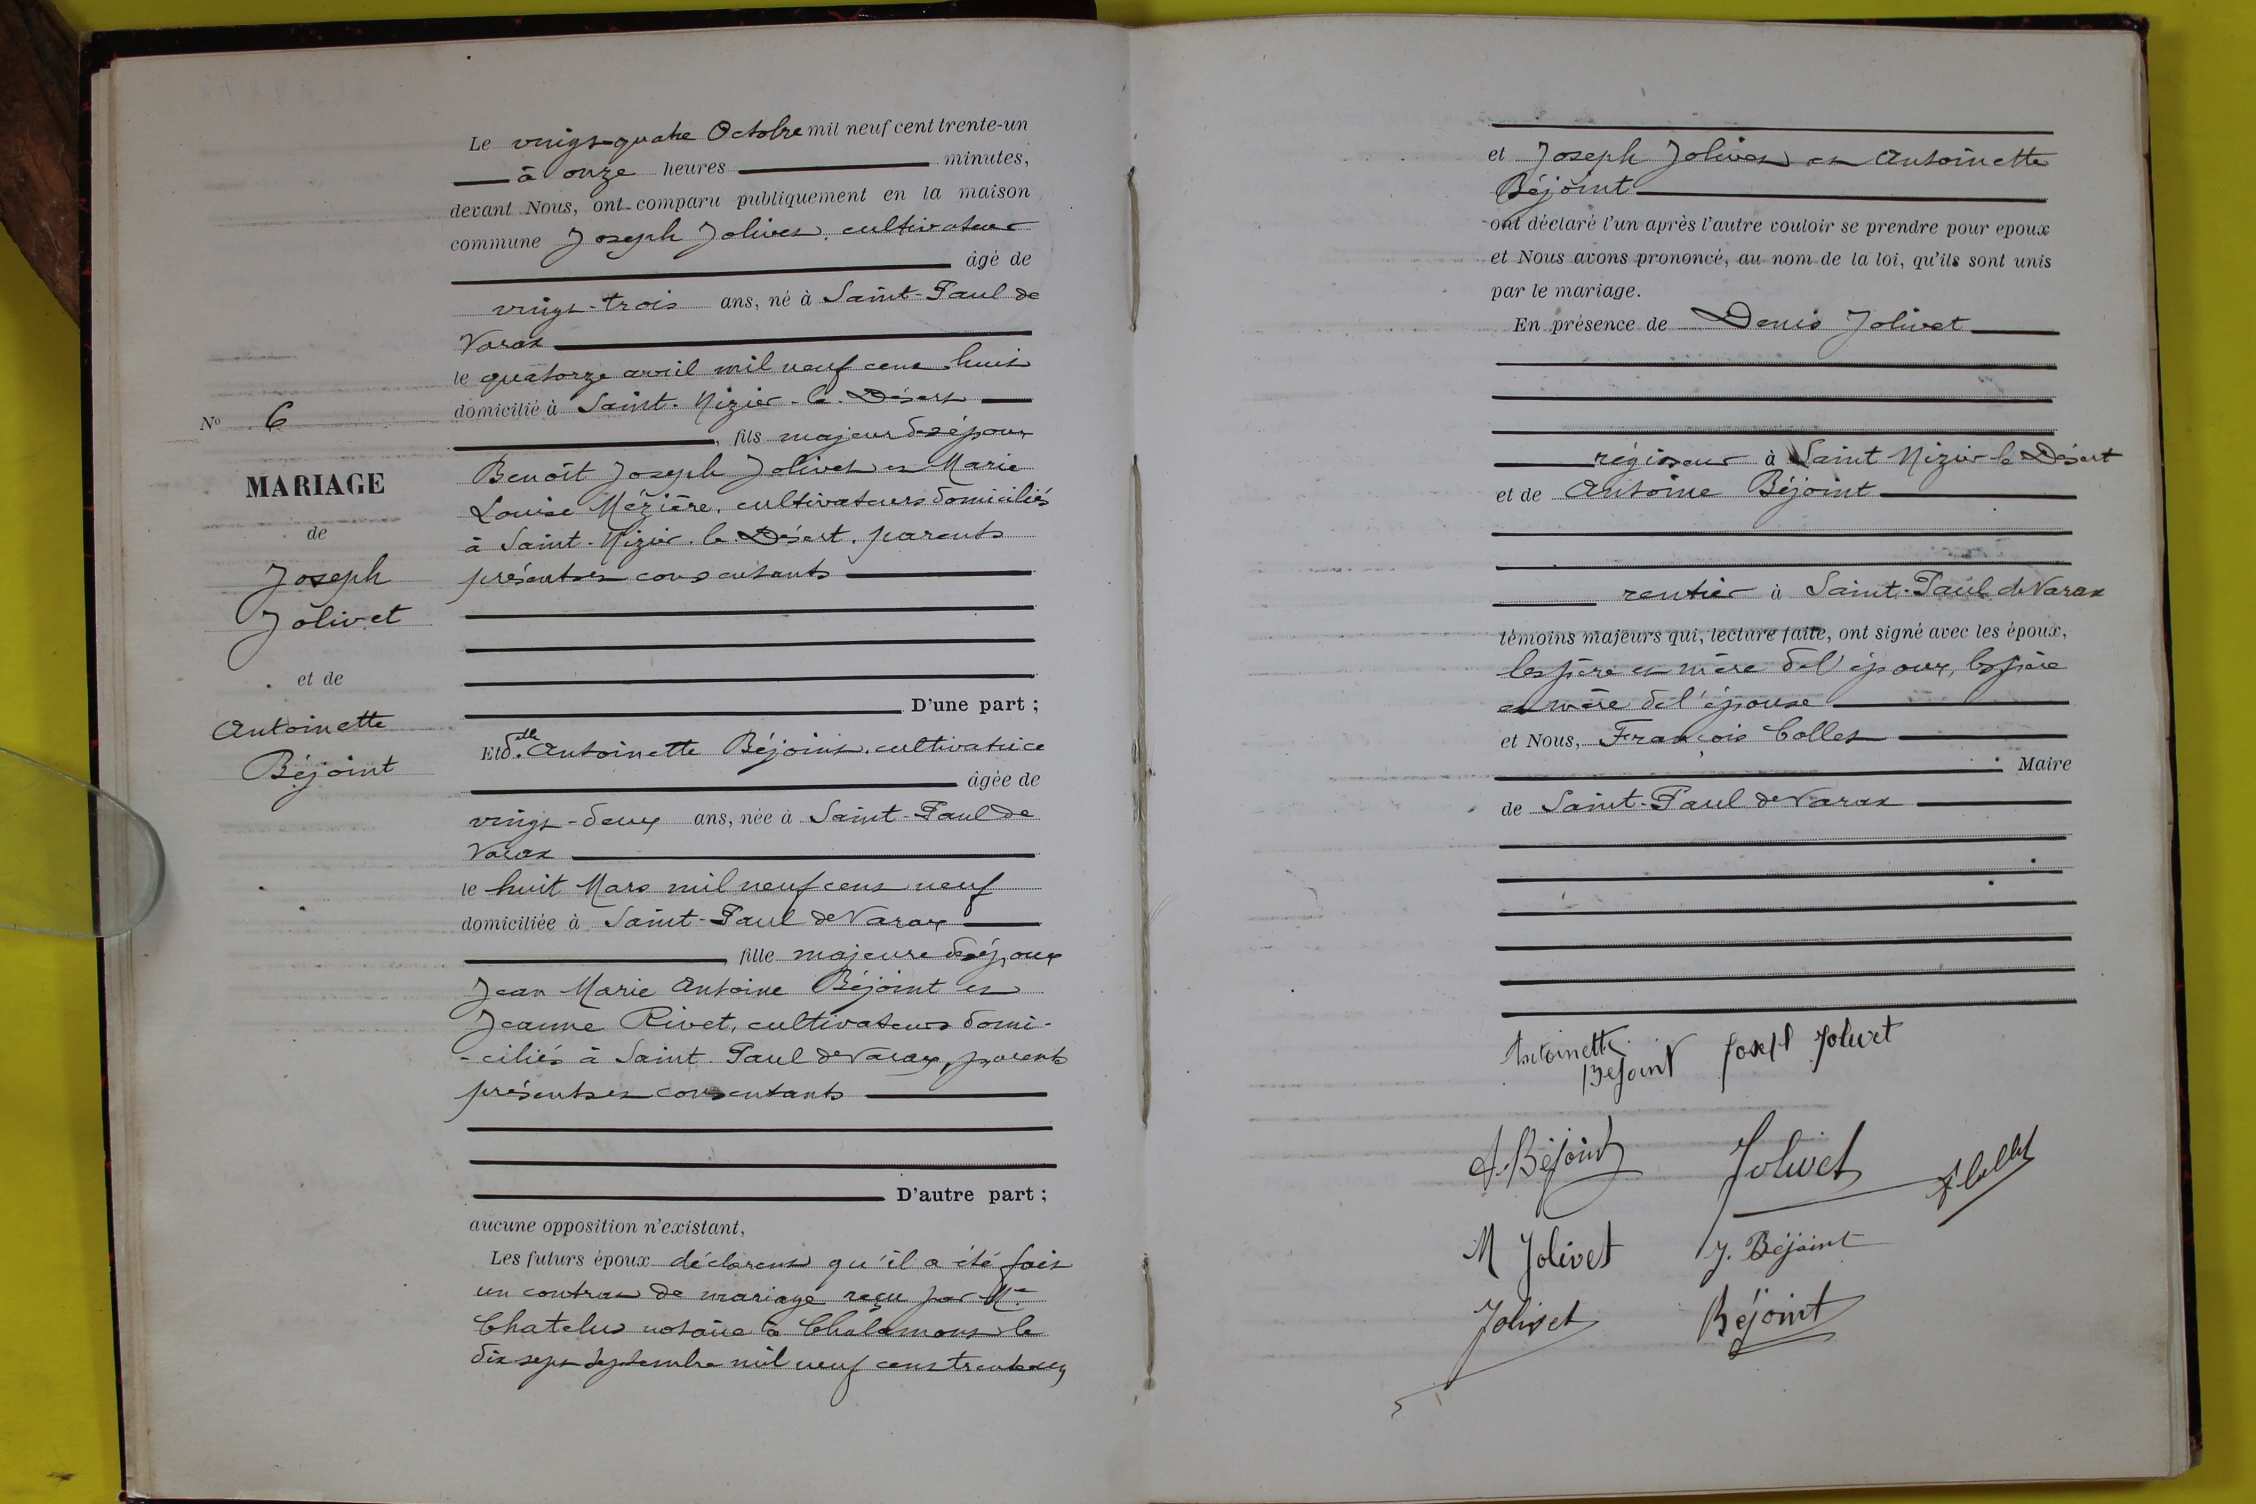 Le vingt-quatre Octobre mil neuf cent trente-un
à onze heures minutes,
devant Nous, ont comparu publiquement en la maison
commune Joseph Jolivet, cultivateur
âgé de
vingt-trois ans, né à Saint-Paul de
Varax
le quatorze avril mil neuf cent huit
domicilié à Saint-Nizier-le-Désert
, fils majeur des époux
Benoît Joseph Jolivet et Marie
Louise Mézière, cultivateurs domiciliés
à Saint-Nizier-le-Désert, parents
présents et consentants
D'une part ;
Et Dlle Antoinette Béjoint, cultivatrice
âgée de
vingt-deux ans, née à Saint-Paul de
Varax
le huit Mars mil neuf cent neuf
domiciliée à Saint-Paul de Varax
, fille majeure des époux
Jean Marie Antoine Béjoint et
Jeanne Rivet, cultivateurs domi-
-ciliés à Saint Paul de Varax, parents
présents et consentants
D'autre part ;
aucune opposition n'existant,
Les futurs époux déclarent qu'il a été fait
un contrat de mariage reçu par Me
Chatelus notaire à Chalamont le
dix sept septembre mil neuf cent trente un
No 6
MARIAGE
de
Joseph
Jolivet
et de
Antoinette
Béjoint
et Joseph Jolivet et Antoinette
Béjoint
ont déclaré l'un après l'autre vouloir se prendre pour epoux
et Nous avons prononcé, au nom de la loi, qu'ils sont unis
par le mariage.
En présence de Denis Jolivet
régisseur à Saint Nizier le Désert
et de Antoine Béjoint
rentier à Saint-Paul de Varax
témoins majeurs qui, lecture faite, ont signé avec les époux,
les père et mère de l'époux, les père
et mère de l'épouse
et Nous, François Collet
Maire
de Saint-Paul de Varax
Antoinette
Bejoint Joseph Jolivet
A. Béjoint Jolivet F Collet
M Jolivet J. Béjoint
Jolivet Béjoint